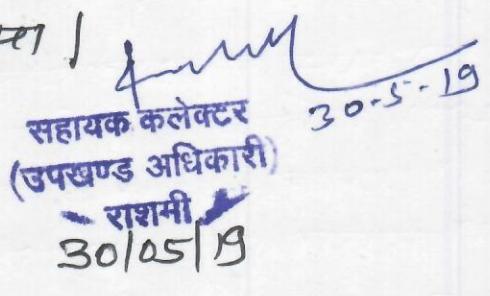 30-5-19
सहायक कलेक्टर
(उपखण्ड अधिकारी)
राशमी
30/05/19